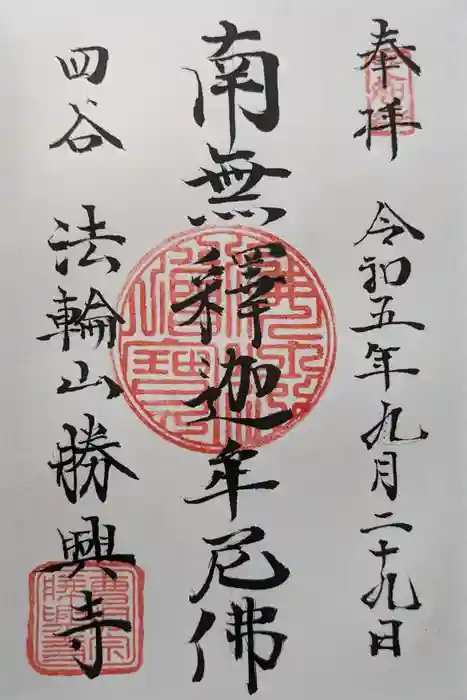 奉拝
令和五年九月二十九日
南無釋迦牟尼佛
四谷
法輪山勝興寺